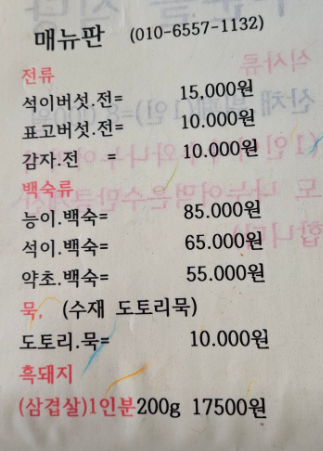 매뉴판 (010-6557-1132)
전류
석이버섯.전= 15,000원
표고버섯.전= 10.000원
감자.전 = 10.000원
백숙류
능이.백숙= 85.000원
석이.백숙= 65.000원
약초.백숙= 55.000원
묵, (수재 도토리묵)
도토리.묵= 10.000원
흑돼지
(삼겹살)1인분200g 17500원